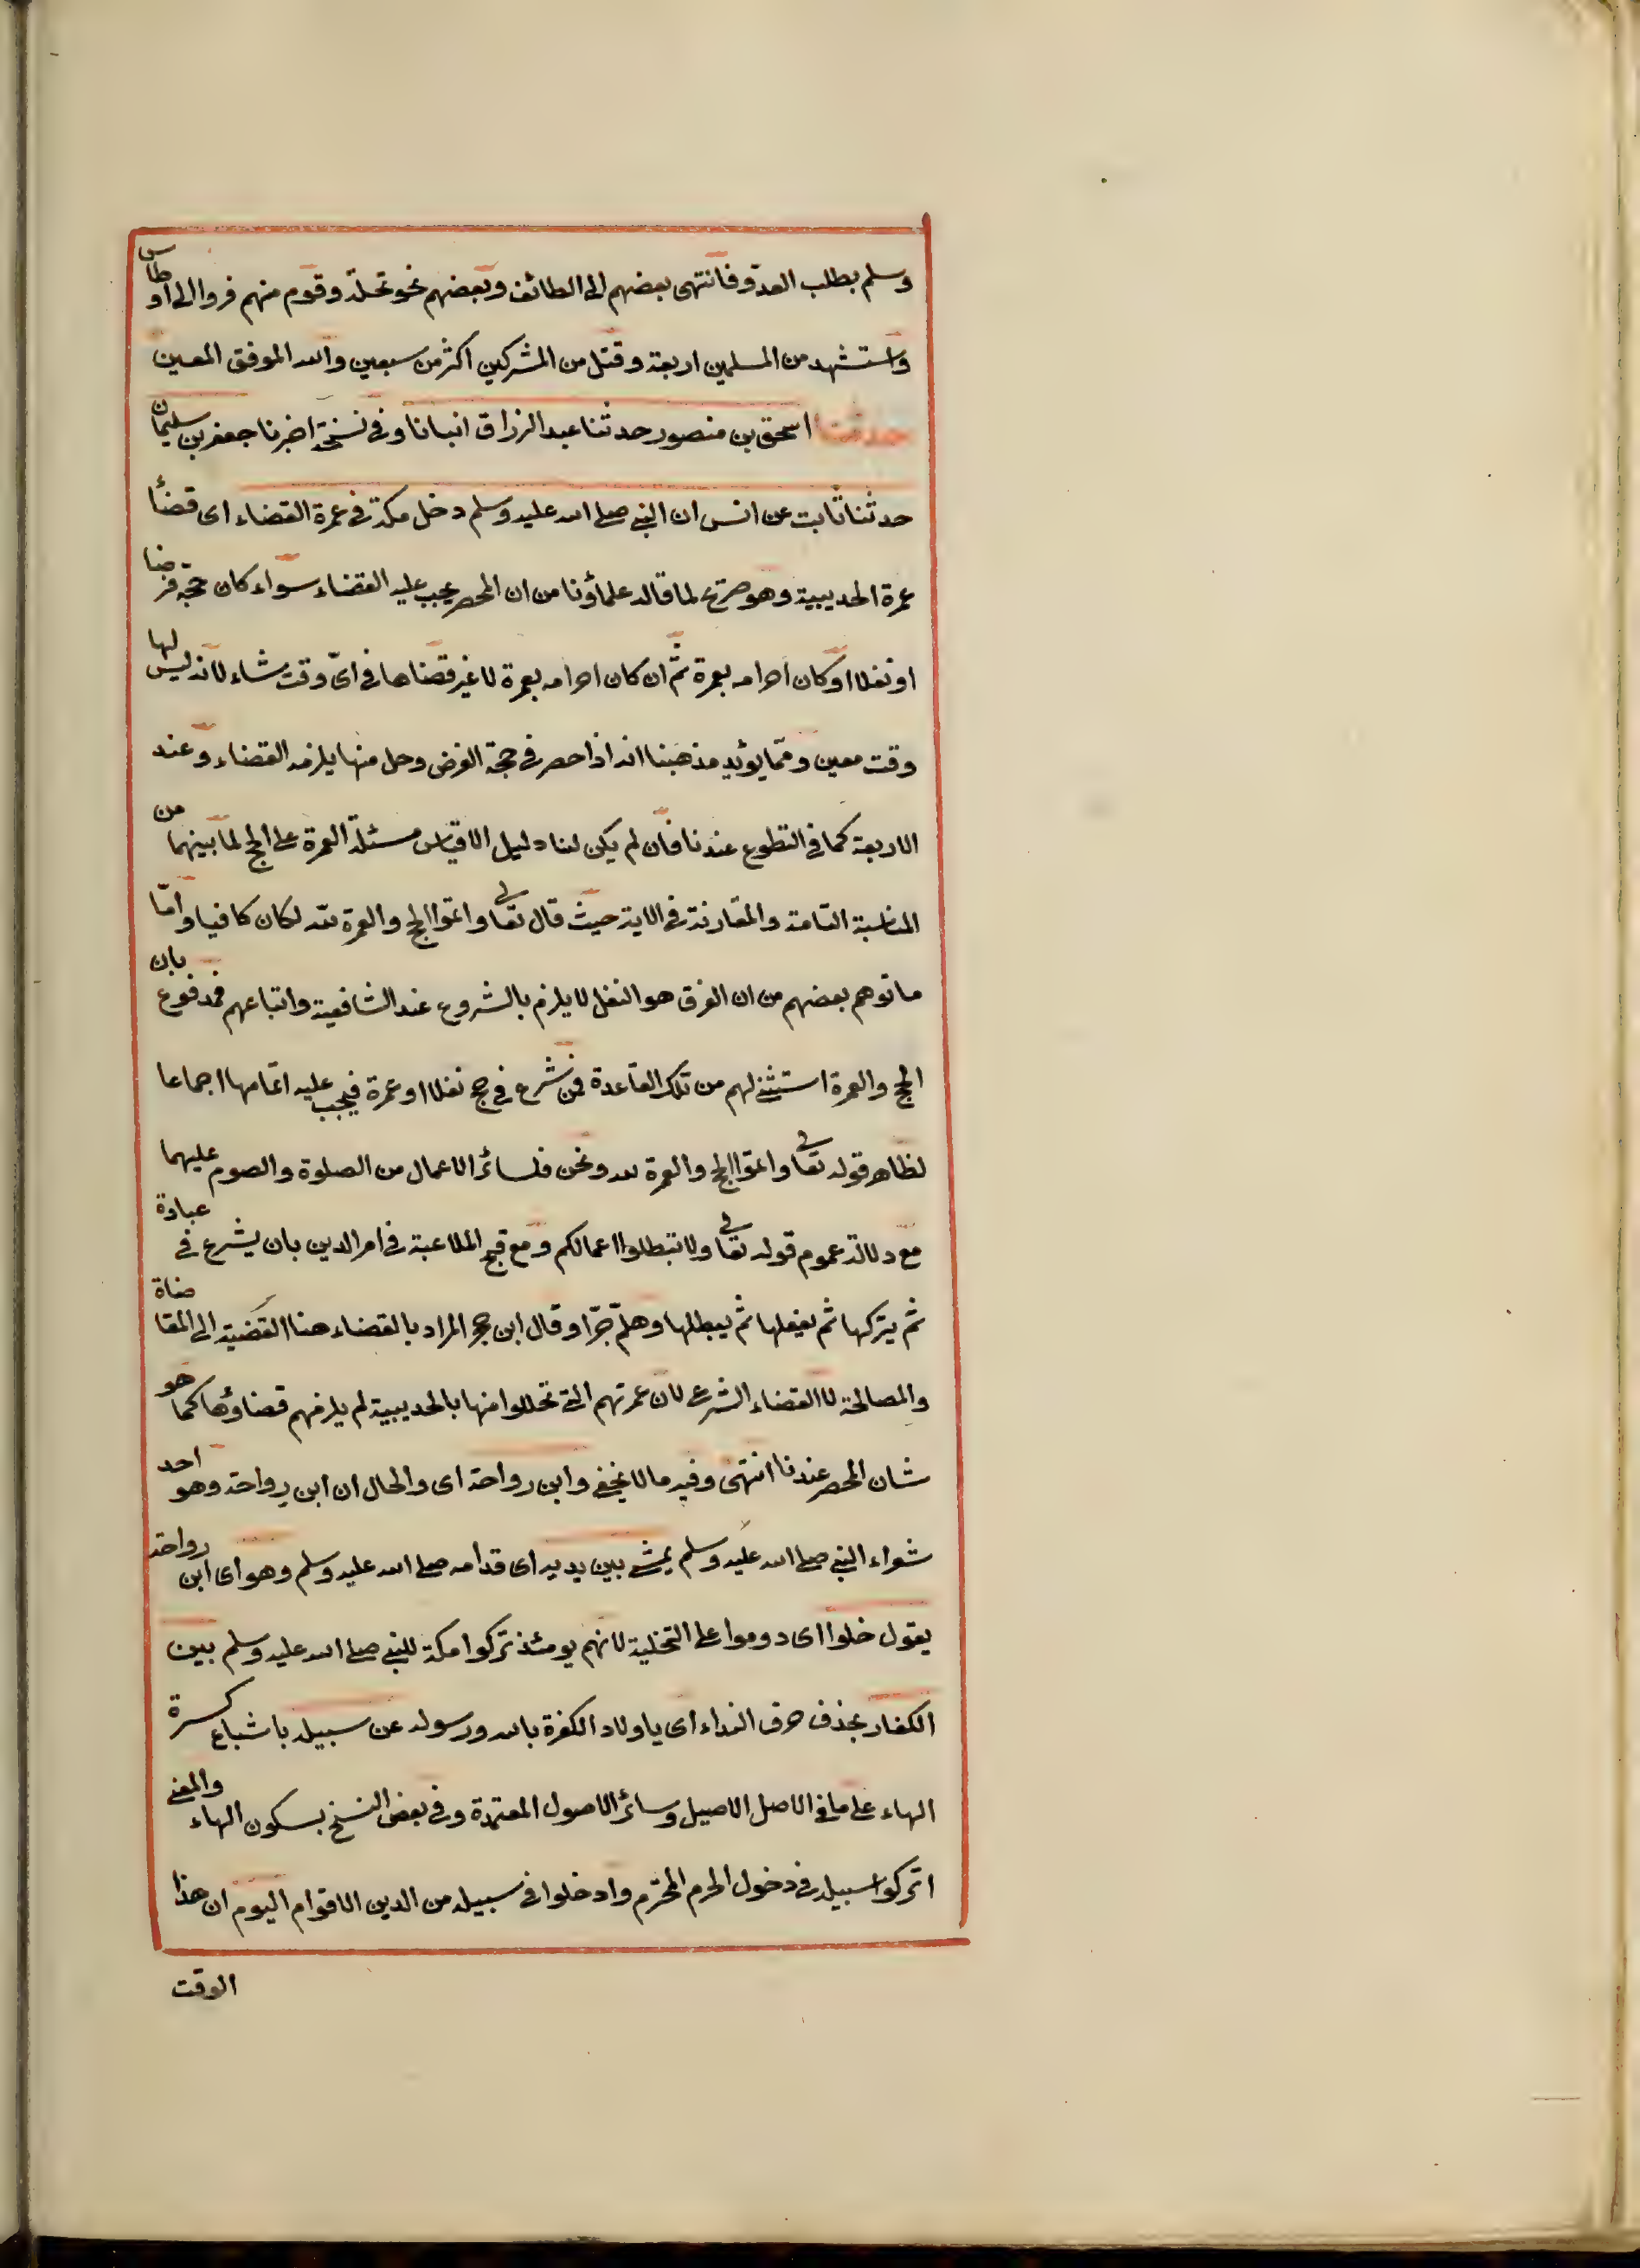 وسلم بطلب العدو فانتهى بعضهم الى الطائف وبعضهم نحو نخلة وقوم منهم فروا الى اوطاس
واستشهد من المسلمين اربعة وقتل من المشركين اكثر من سبعين والله الموفق المعين
حدثنا اسحق بن منصور حدثنا عبد الرزاق انبانا وفى نسخة اخبرنا جعفر بن سليمان
حدثنا ثابت عن انس ان النبى صلى الله عليه وسلم دخل مكة فى عمرة القضاء اى قضأ
عمرة الحديبية وهو صريح لما قاله علماؤنا من ان المحصر يجب عليه القضاء سواء كان حجه فرضا
او نفلا او كان احرامه بعمرة ثم ان كان احرامه بعمرة لا غير قضاها فى اىّ وقت شاء لانه ليس لها
وقت معين ومما يؤيد مذهبنا انه اذا حصر فى حجة الفرض وحل منها يلزمه القضاء وعند
الاربعة كما فى التطوع عندنا فان لم يكن لنا دليل الا قياس مسئلة العمرة على الحج لما بينهما من
المناسبة التامة والمقارنة فى الاية حيث قال تعالى واتموا الحج والعمرة لله لكان كافيا وامّا
ما توهم بعضهم من ان الفرق هو النفل لا يلزم بالشروع عند الشافعية واتباعهم فمدفوع بان
الحج والعمرة استثنى لهم من تلك القاعدة فمن شرع فى حج نفلا او عمرة فيجب عليه اتمامها اجماعا
لظاهر قوله تعالى واتموا الحج والعمرة لله ونحن فسائر الاعمال من الصلوة والصوم عليهما
مع دلالة عموم قوله تعالى ولا تبطلوا اعمالكم ومع قبح الملاعبة فى امر الدين بان يشرع فى عبادة
ثم يتركها ثم يفعلها ثم يبطلها وهلمّ جرّا وقال ابن حجر المراد بالقضاء هنا القضية الى المقاضاة
والمصالحة لا القضاء الشرعى لان عمرتهم التى تحللوا منها بالحديبية لم يلزمهم قضاؤها كما هو
شان المحصر عندنا انتهى وفيه ما لا يخفى وابن رواحة اى والحال ان ابن رواحة وهو احد
شعراء النبى صلى الله عليه وسلم يمشى بين يديه اى قدامه صلى الله عليه وسلم وهو اى ابن رواحة
يقول خلوا اى دوموا على التخلية لانهم يومئذ تركوا مكة للنبى صلى الله عليه وسلم بين
الكفار بحذف حرف النداء اى يا ولاد الكفرة بالله ورسوله عن سبيله باشباع كسرة
الهاء على ما فى الاصل الاصيل وسائر الاصول المعتمدة وفى بعض النسخ بسكون الهاء والمعنى
اتركوا سبيله فى دخول الحرم المحرّم وادخلوا فى سبيله من الدين الاقوام اليوم ان هذا
الوقت